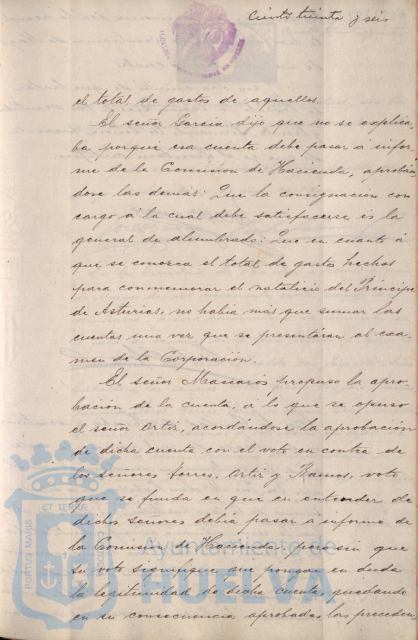 Ciento treinta y seis
el total de gastos de aquellos.
El señor García dijo que no se explica
ba porqué esa cuenta debe pasar a infor
me de la Comision de Hacienda, aprobán
dose las demás: Que la consignación con
cargo á la cual debe satisfacerse es la
general de alumbrado: Que en cuanto á
que se conozca el total de gastos hechos
para conmemorar el natalicio del Príncipe
de Asturias, no había más que sumar las
cuentas una vez que se presentáran al exá
men de la Corporación.
El señor Mascarós propuso la apro-
bación de la cuenta, á lo que se opuso
el señor Ortiz, acordándose la aprobación
de dicha cuenta con el voto en contra de
los señores Torres, Ortiz y Ramos, voto
que se funda en que en entender de
dichos señores debia pasar a informe de
la Comision de Hacienda, pero sin que
su voto signifique que pongan en duda
la legitimidad de dicha cuenta, quedando
en su consecuencia aprobadas las preceden
PORTUS MARIS ET TERRÆ
Ayuntamiento de
HUELVA